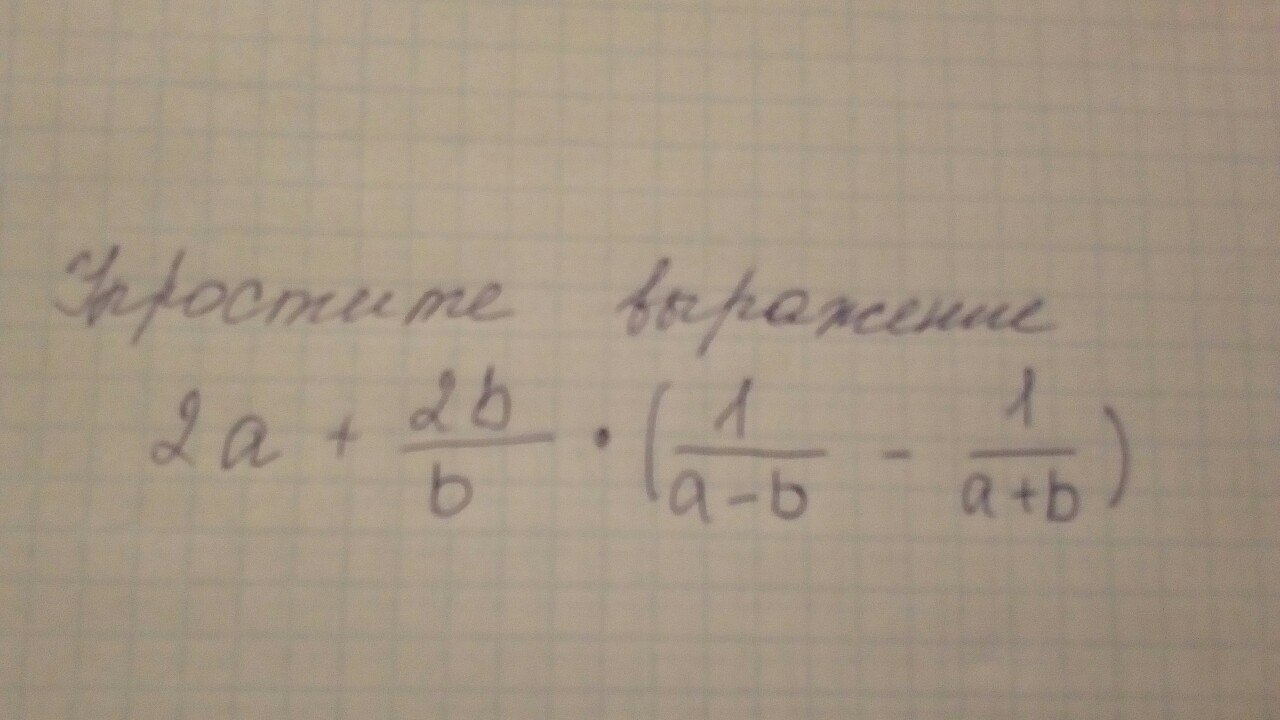 Упростите выражение
2a + 2b/b · (1/a-b - 1/a+b)